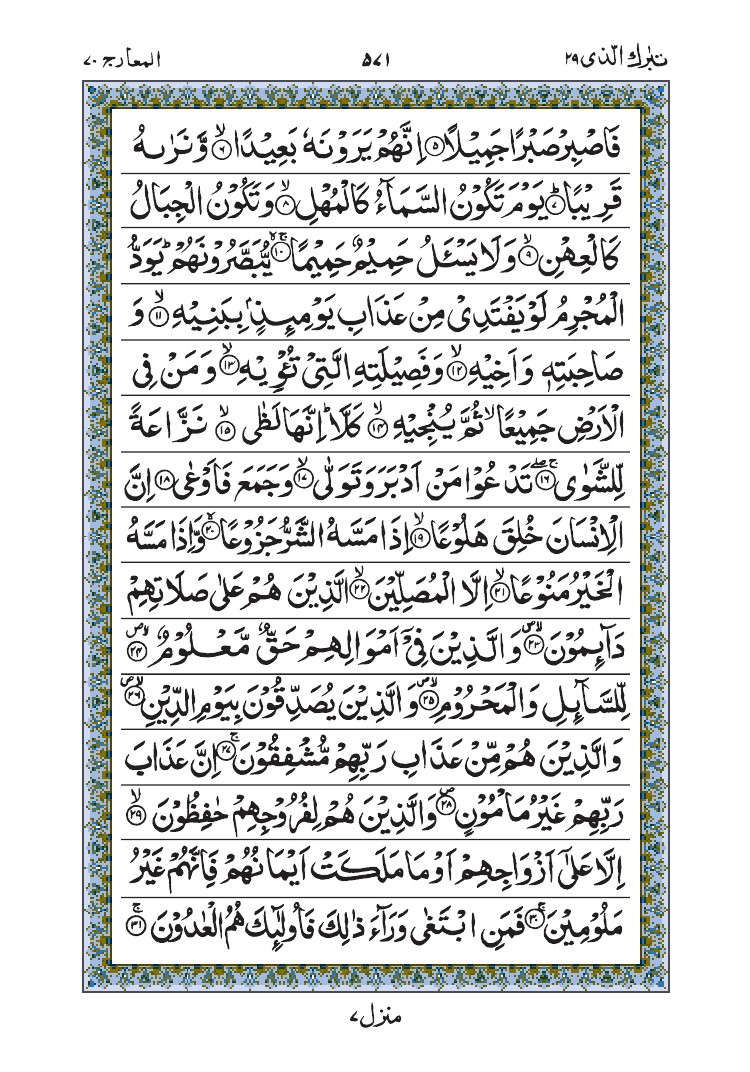 تبٰرك الذی ۲۹
۵۷۱
المعارج ۷۰
فَاصْبِرْ صَبْرًا جَمِيْلًا ﴿۵﴾ اِنَّهُمْ يَرَوْنَهٗ بَعِيْدًا ۙ﴿۶﴾ وَّ نَرٰىهُ
قَرِيْبًا ؕ﴿۷﴾ يَوْمَ تَكُوْنُ السَّمَآءُ كَالْمُهْلِ ۙ﴿۸﴾ وَ تَكُوْنُ الْجِبَالُ
كَالْعِهْنِ ۙ﴿۹﴾ وَ لَا يَسْـَٔلُ حَمِيْمٌ حَمِيْمًا ۚۖ﴿۱۰﴾ يُّبَصَّرُوْنَهُمْ ؕ يَوَدُّ
الْمُجْرِمُ لَوْ يَفْتَدِىْ مِنْ عَذَابِ يَوْمِىِٕذٍۭ بِبَنِيْهِ ۙ﴿۱۱﴾ وَ
صَاحِبَتِهٖ وَ اَخِيْهِ ۙ﴿۱۲﴾ وَ فَصِيْلَتِهِ الَّتِىْ تُـْٔوِيْهِ ۙ﴿۱۳﴾ وَ مَنْ فِى
الْاَرْضِ جَمِيْعًا ۙ ثُمَّ يُنْجِيْهِ ۙ﴿۱۴﴾ كَلَّا ؕ اِنَّهَا لَظٰى ۙ﴿۱۵﴾ نَزَّاعَةً
لِّلشَّوٰى ۚۖ﴿۱۶﴾ تَدْعُوْا مَنْ اَدْبَرَ وَ تَوَلّٰى ۙ﴿۱۷﴾ وَ جَمَعَ فَاَوْعٰى ﴿۱۸﴾ اِنَّ
الْاِنْسَانَ خُلِقَ هَلُوْعًا ۙ﴿۱۹﴾ اِذَا مَسَّهُ الشَّرُّ جَزُوْعًا ۙ﴿۲۰﴾ وَّ اِذَا مَسَّهُ
الْخَيْرُ مَنُوْعًا ۙ﴿۲۱﴾ اِلَّا الْمُصَلِّيْنَ ۙ﴿۲۲﴾ الَّذِيْنَ هُمْ عَلٰى صَلَاتِهِمْ
دَآىِٕمُوْنَ ۪ۙ﴿۲۳﴾ وَ الَّذِيْنَ فِىْۤ اَمْوَالِهِمْ حَقٌّ مَّعْلُوْمٌ ۪ۙ﴿۲۴﴾
لِّلسَّآىِٕلِ وَ الْمَحْرُوْمِ ۪ۙ﴿۲۵﴾ وَ الَّذِيْنَ يُصَدِّقُوْنَ بِيَوْمِ الدِّيْنِ ۪ۙ﴿۲۶﴾
وَ الَّذِيْنَ هُمْ مِّنْ عَذَابِ رَبِّهِمْ مُّشْفِقُوْنَ ۚ﴿۲۷﴾ اِنَّ عَذَابَ
رَبِّهِمْ غَيْرُ مَاْمُوْنٍ ۪﴿۲۸﴾ وَ الَّذِيْنَ هُمْ لِفُرُوْجِهِمْ حٰفِظُوْنَ ۙ﴿۲۹﴾
اِلَّا عَلٰۤى اَزْوَاجِهِمْ اَوْ مَا مَلَكَتْ اَيْمَانُهُمْ فَاِنَّهُمْ غَيْرُ
مَلُوْمِيْنَ ۚ﴿۳۰﴾ فَمَنِ ابْتَغٰى وَرَآءَ ذٰلِكَ فَاُولٰٓىِٕكَ هُمُ الْعٰدُوْنَ ۚ﴿۳۱﴾
منزل ۷